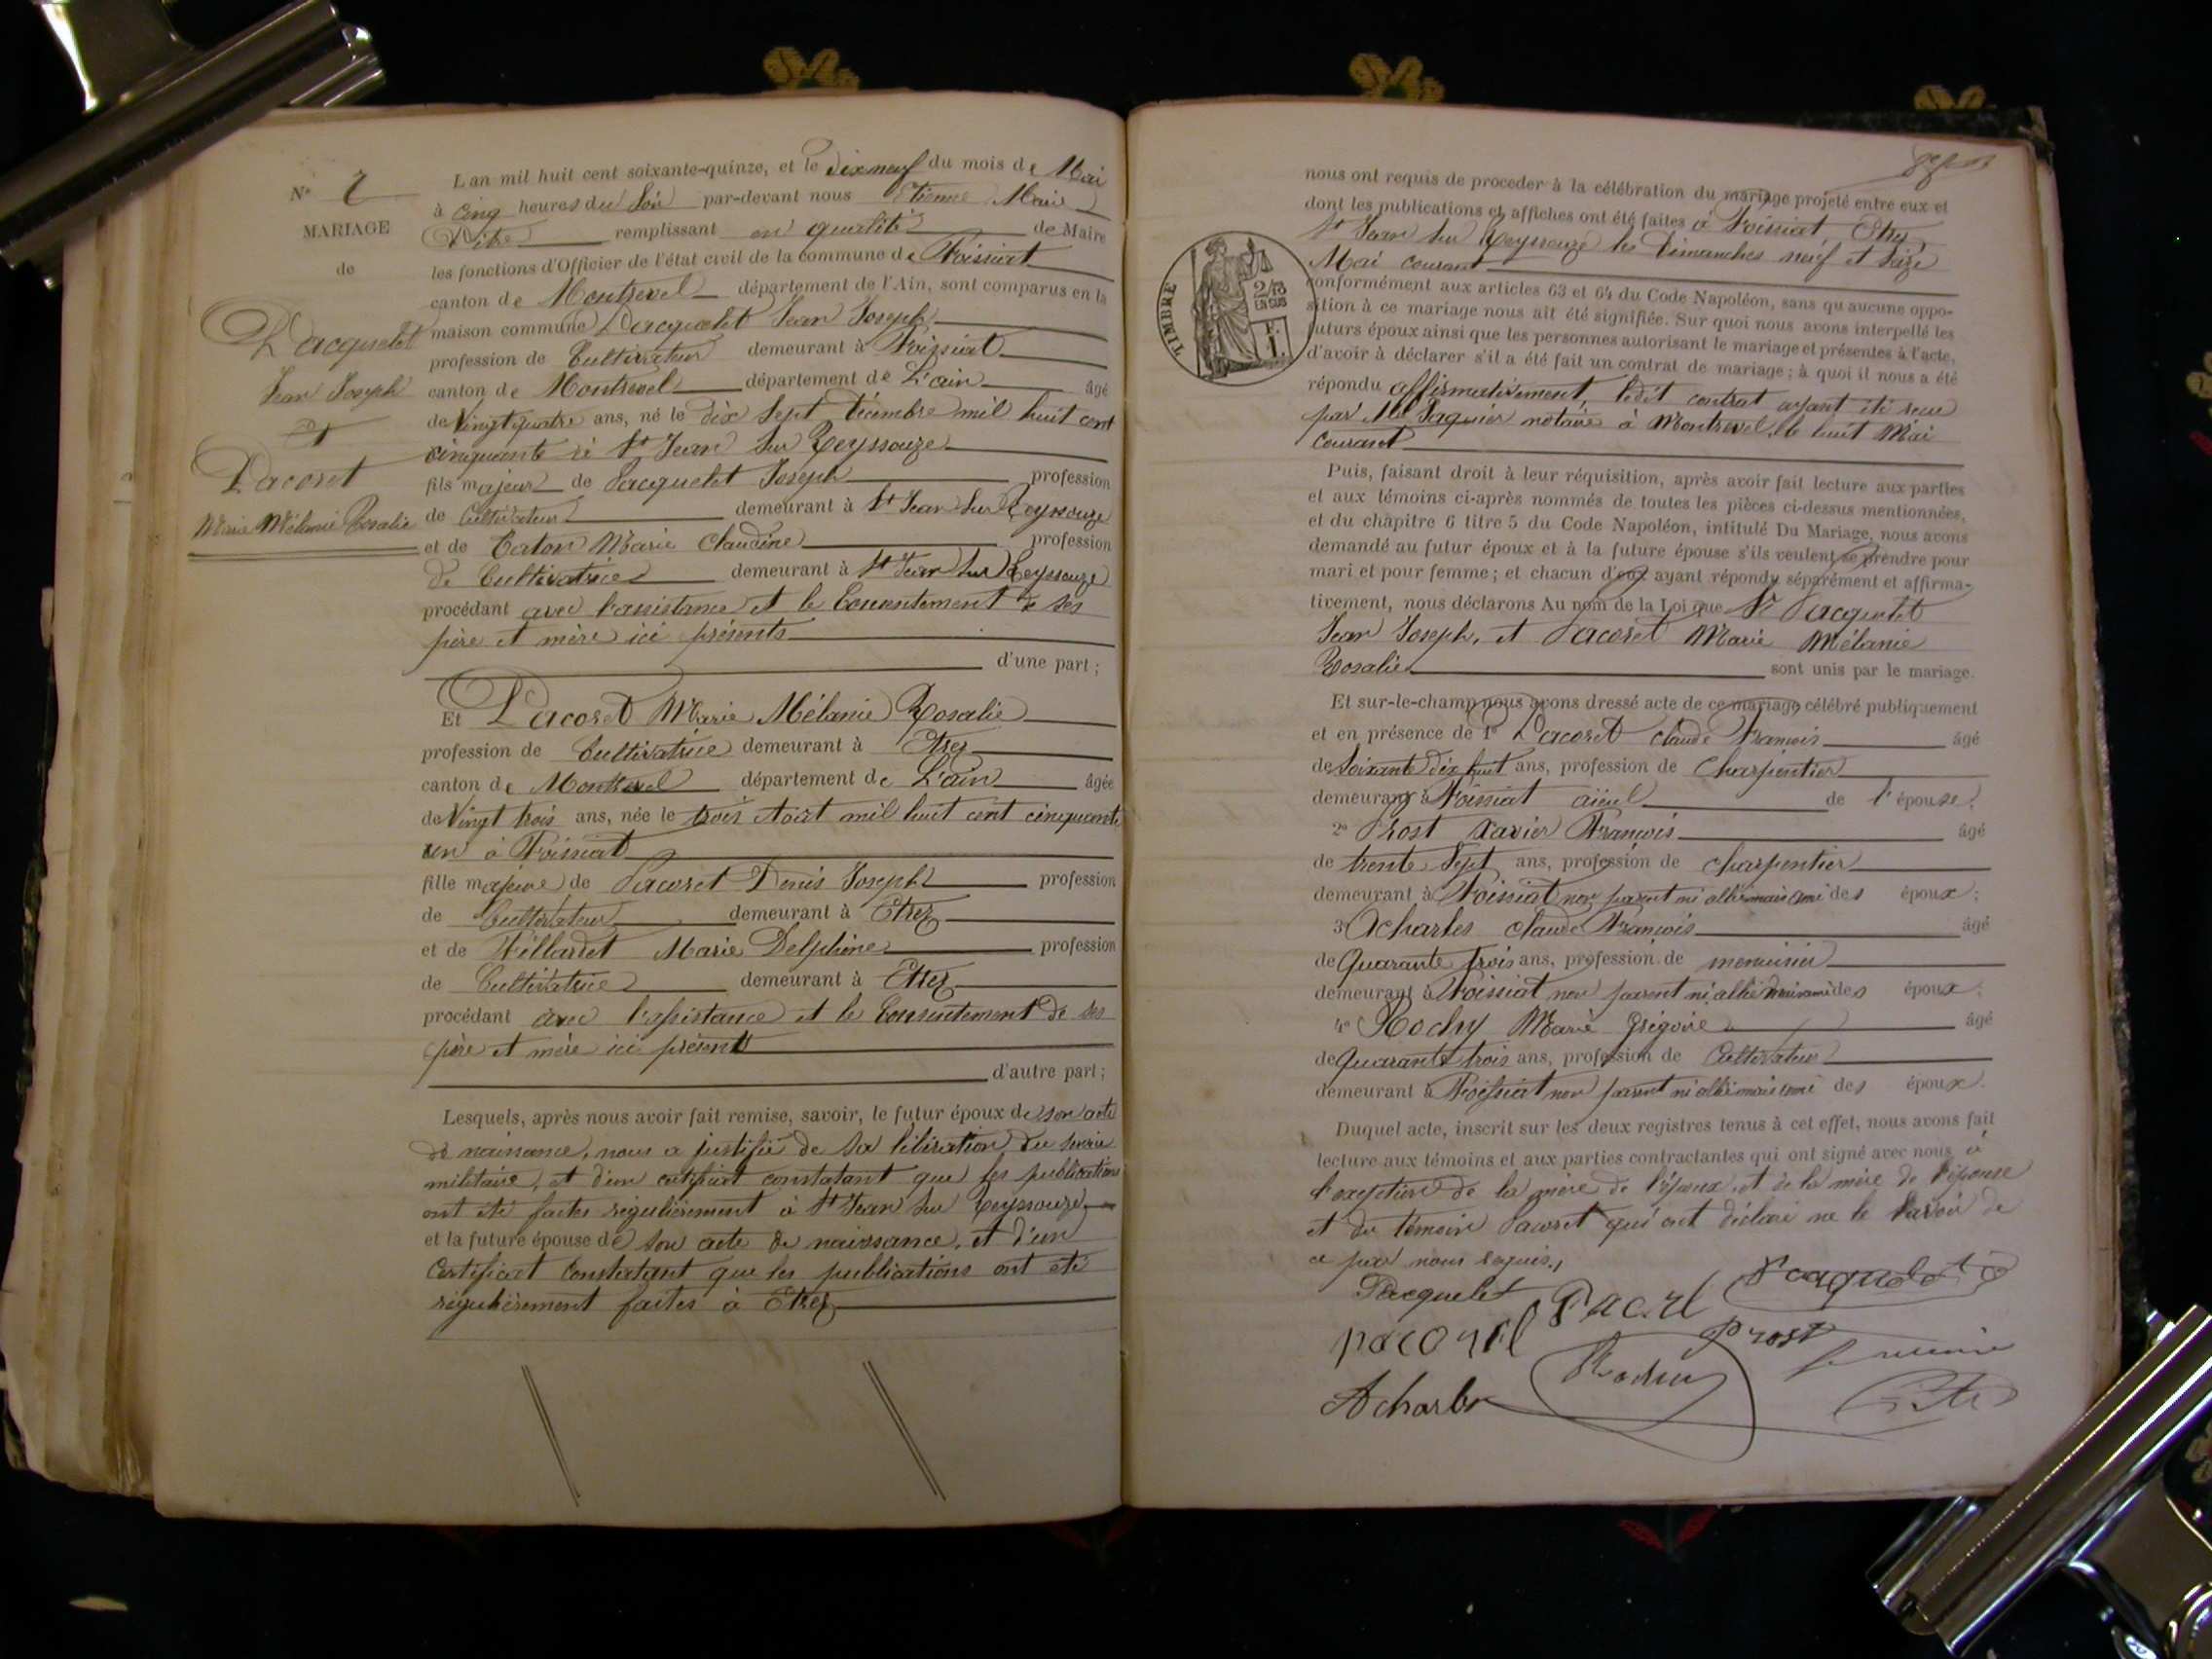 N° 7
MARIAGE
de
Pacquelet
Jean Joseph
et
Pacoret
Marie Mélanie Rosalie
L'an mil huit cent soixante-quinze, et le dix neuf du mois de Mai
à cinq heures du soir par-devant nous Etienne Marie
Pite remplissant en qualité de Maire
les fonctions d'Officier de l'état civil de la commune de Foissiat
canton de Montrevel département de l'Ain, sont comparus en la
maison commune Pacquelet Jean Joseph
profession de Cultivateur demeurant à Foissiat
canton de Montrevel département de L'ain âgé
de Vingt quatre ans, né le dix sept décembre mil huit cent
cinquante à St Jean sur Reyssouze
fils majeur de Pacquelet Joseph profession
de Cultivateur demeurant à St Jean sur Reyssouze
et de Caton Marie Claudine profession
de Cultivatrice demeurant à St Jean sur Reyssouze
procédant avec l'assistance et le Consentement de ses
père et mère ici présents
d'une part ;
Et Pacoret Marie Mélanie Rosalie
profession de Cultivatrice demeurant à Etrez
canton de Montrevel département de L'ain âgée
de Vingt trois ans, née le trois Août mil huit cent cinquante
un à Foissiat
fille majeure de Pacoret Denis Joseph profession
de Cultivateur demeurant à Etrez
et de Fillardet Marie Delphine profession
de Cultivatrice demeurant à Etrez
procédant avec l'assistance et le Consentement de ses
père et mère ici présents
d'autre part ;
Lesquels, après nous avoir fait remise, savoir, le futur époux de son acte
de naissance, nous a justifié de sa libération du service
militaire, et d'un certificat constatant que les publications
ont été faites régulièrement à St Jean sur Reyssouze
et la future épouse de son acte de naissance, et d'un
Certificat Constatant que les publications ont été
régulièrement faites à Etrez
nous ont requis de procéder à la célébration du mariage projeté entre eux et
dont les publications et affiches ont été faites à Foissiat Etrez
St Jean sur Reyssouze les Dimanches neuf et seize
Mai courant
TIMBRE
conformément aux articles 63 et 64 du Code Napoléon, sans qu'aucune oppo-
sition à ce mariage nous ait été signifiée. Sur quoi nous avons interpellé les
futurs époux ainsi que les personnes autorisant le mariage et présentes à l'acte,
d'avoir à déclarer s'il a été fait un contrat de mariage ; à quoi il nous a été
répondu affirmativement, ledit contrat ayant été reçu
par Me notaire à Montrevel le huit Mai
courant
Puis, faisant droit à leur réquisition, après avoir fait lecture aux parties
et aux témoins ci-après nommés de toutes les pièces ci-dessus mentionnées,
et du chapitre 6 titre 5 du Code Napoléon, intitulé Du Mariage, nous avons
demandé au futur époux et à la future épouse s'ils veulent se prendre pour
mari et pour femme ; et chacun d'eux ayant répondu séparément et affirma-
tivement, nous déclarons Au nom de la Loi que Pacquelet
Jean Joseph, et Pacoret Marie Mélanie
Rosalie sont unis par le mariage.
Et sur-le-champ nous avons dressé acte de ce mariage célébré publiquement
et en présence de 1° Pacoret Claude François âgé
de Soixante dix huit ans, profession de Charpentier
demeurant à Foissiat aïeul de l'épouse ;
2° Prost Xavier François âgé
de trente sept ans, profession de charpentier
demeurant à Foissiat non parent ni allié mais ami des époux ;
3° Acharles Claude François âgé
de Quarante trois ans, profession de menuisier
demeurant à Foissiat non parent ni allié mais ami des époux ;
4° Rochy Marie Grégoire âgé
de Quarante trois ans, profession de Cultivateur
demeurant à Foissiat non parent ni allié mais ami des époux.
Duquel acte, inscrit sur les deux registres tenus à cet effet, nous avons fait
lecture aux témoins et aux parties contractantes qui ont signé avec nous à
l'exception de la mère de l'époux, et de la mère de l'épouse
et du témoin Pacoret qui ont déclaré ne le savoir de
ce par nous requis.
Pacquelet
Pacquelet
pacoret
Prost
Le maire
Acharles
Rochy
Pite